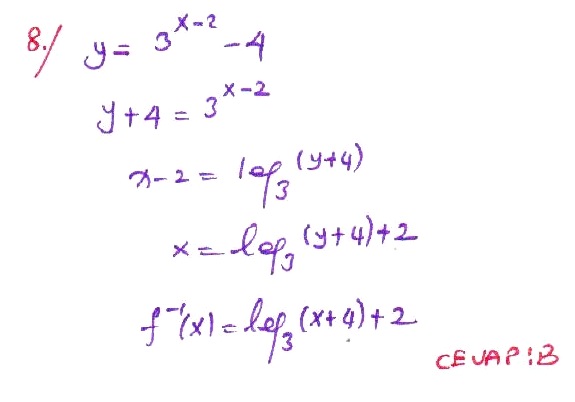 8./ y = 3^{x-2} - 4
y + 4 = 3^{x-2}
x - 2 = log_3 (y+4)
x = log_3 (y+4) + 2
f^{-1}(x) = log_3 (x+4) + 2
CEVAP:B